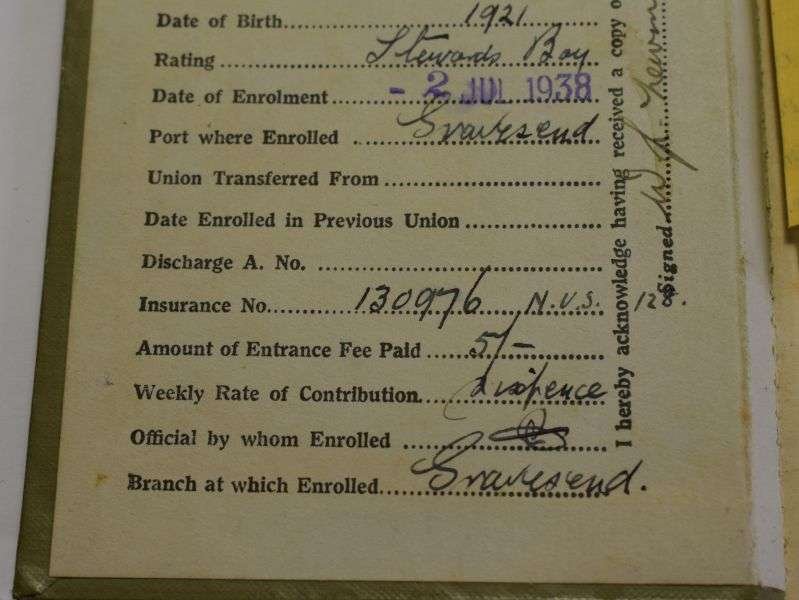 Date of Birth 1921
Rating Stewards Boy
Date of Enrolment - 2 JUL 1938
Port where Enrolled Gravesend
Union Transferred From
Date Enrolled in Previous Union
Discharge A. No.
Insurance No. 130976 N.U.S. 12
Amount of Entrance Fee Paid 5/-
Weekly Rate of Contribution Sixpence
Official by whom Enrolled
Branch at which Enrolled Gravesend.
I hereby acknowledge having received a copy o
Signed W. J.